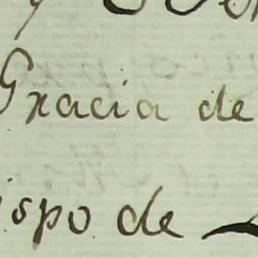 y
Gracia de
ispo de